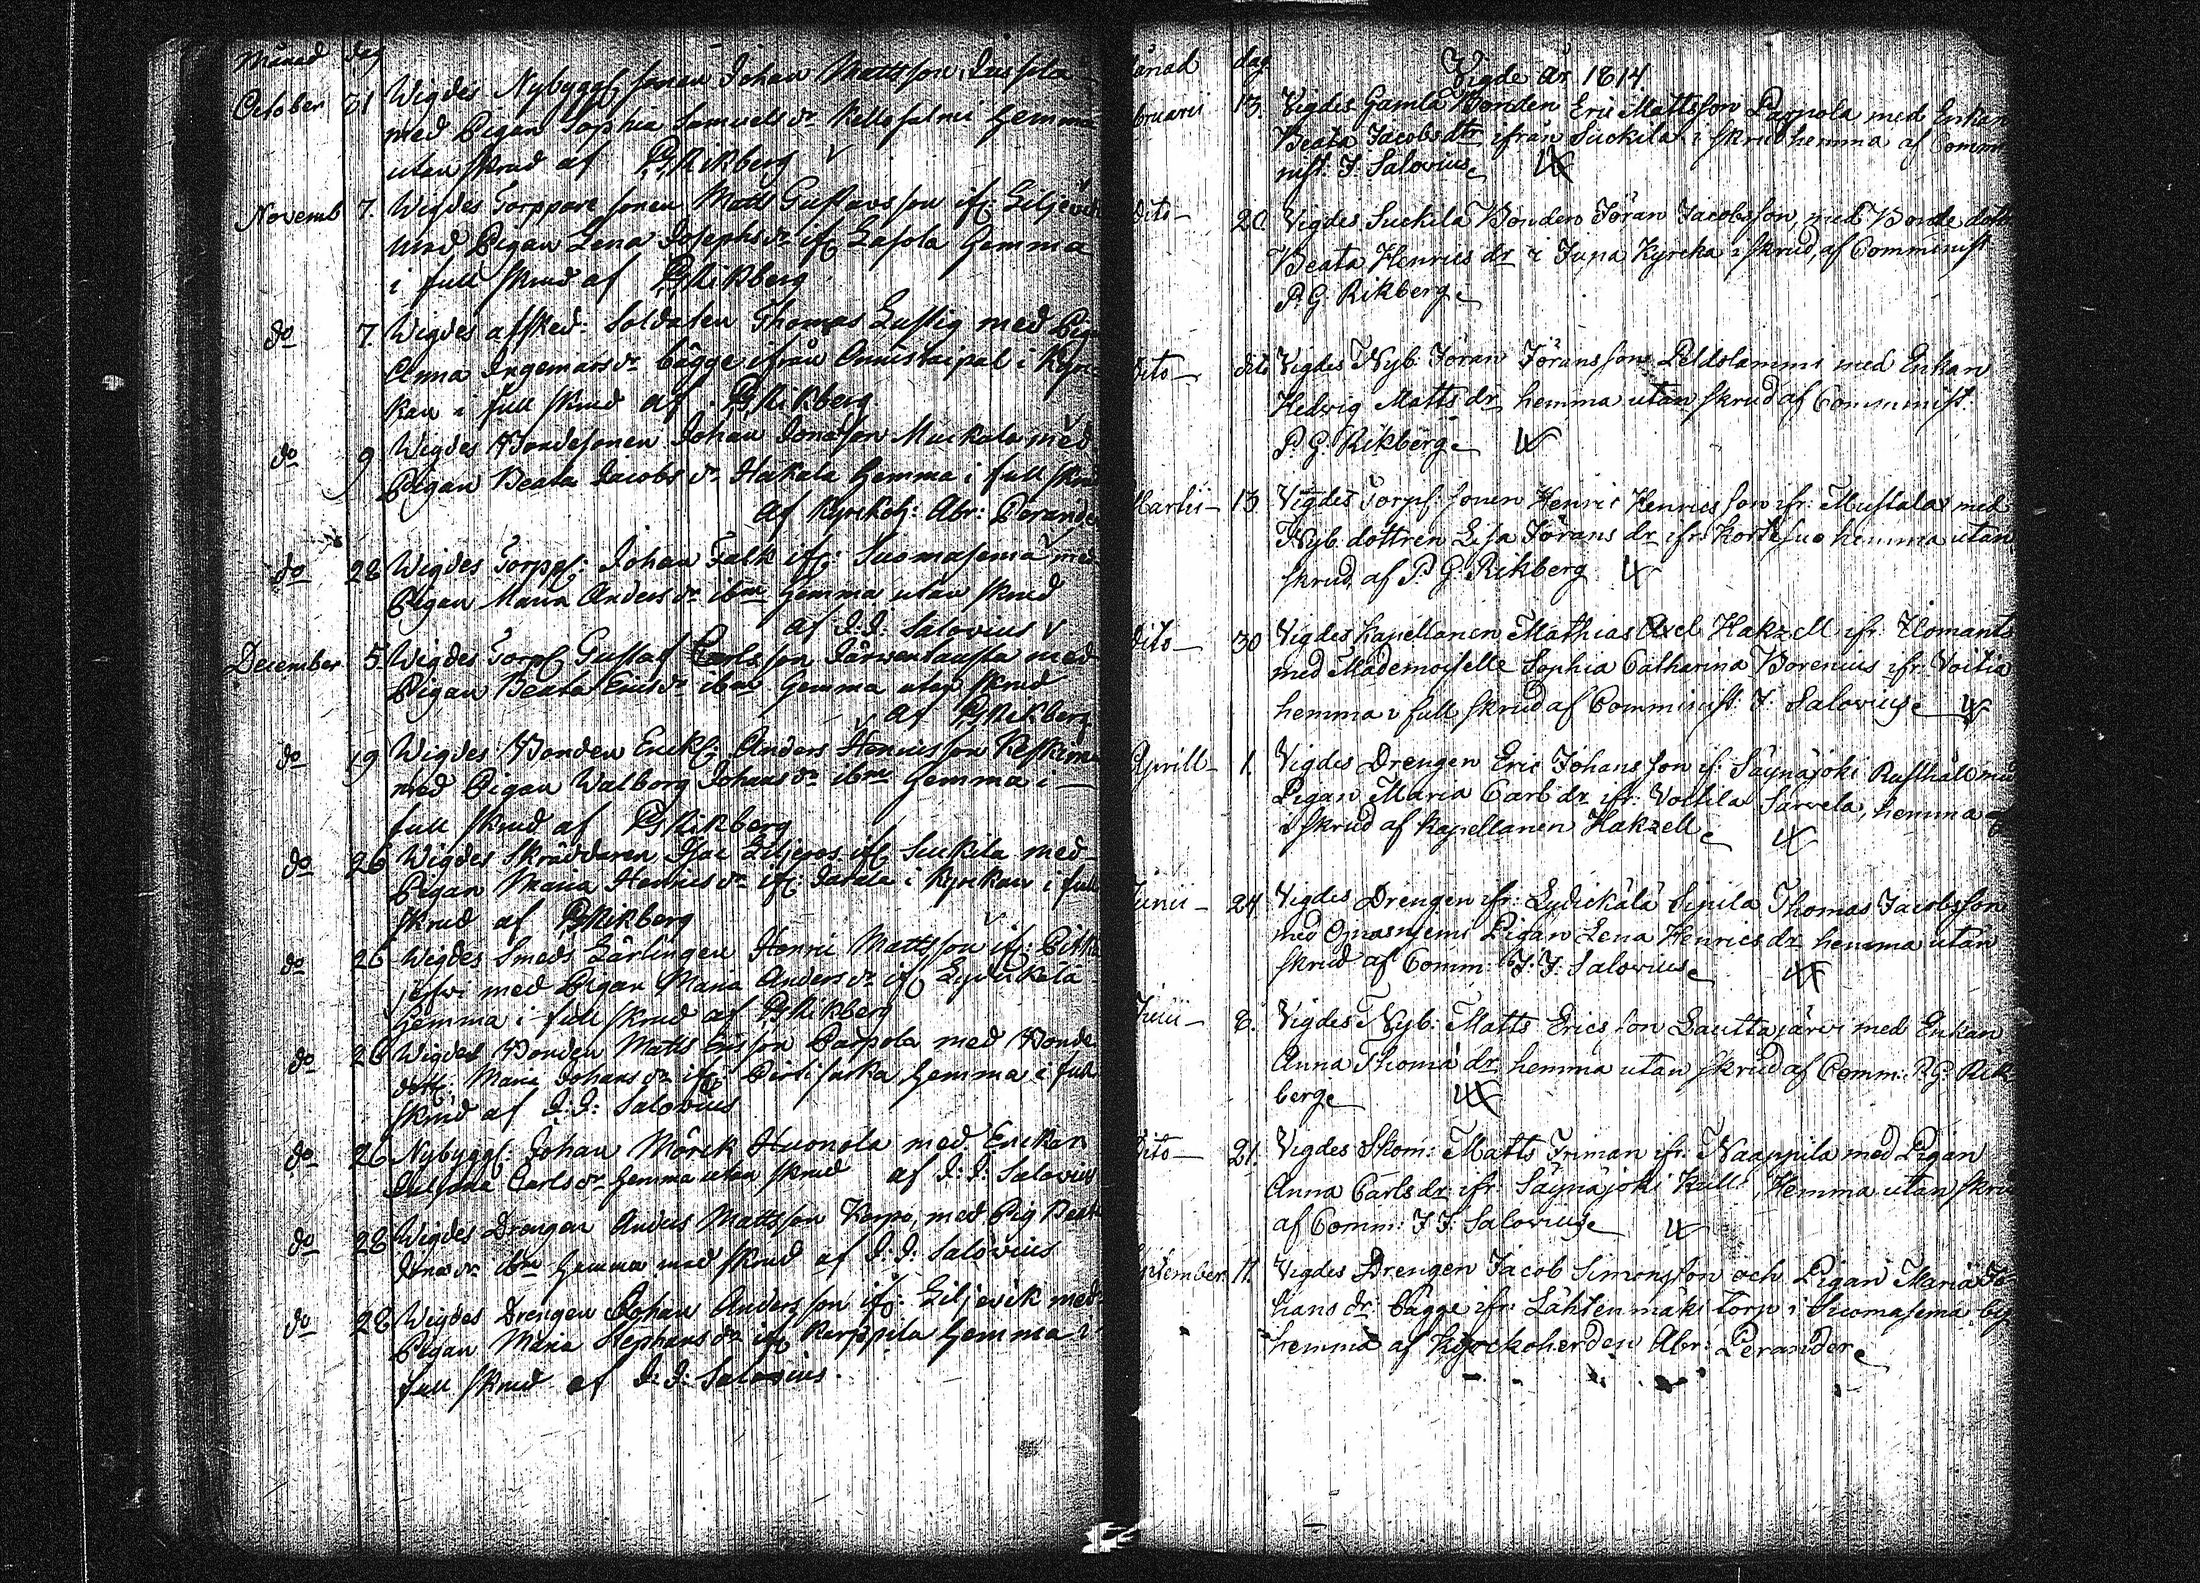 Månad dag
October 31 Wigdes Nybyggs sonen Johan Mattsson Jussila
med Pigan Sophia Samuels dr Kellosalmi hemma
utan skrud af PGRikberg
Novemb 7. Wigdes Torppare sonen Matts Gustavsson ifr: Liljevik
med Pigan Lena Josephs dr ifr Lasola hemma
i full skrud af PGRikberg
do 7 Wigdes afsked: Soldaten Thomas Lustig med Pig
Anna Ingemars dr bägge ifrån Onnistaipal i Kyrc
kan i full skrud af PGRikberg
do 9 Wigdes Bondesonen Johan Jonasson Muckala med
Pigan Beata Jacobs dr Hakala hemma i full skrud
af Kyrckoh: Abr: Perander
do 28 Wigdes Torpps: Johan Falk ifr: Suomasemä med
Pigan Maria Anders dr ibm hemma utan skrud
af J.J: Salovius
December 5. Wigdes Torps Gustaf Carlsson Järventausta med
Pigan Beata Erics dr ibm hemma utan skrud
af PGRikberg
do 19 Wigdes Bonden Enckl: Anders Henricsson Keskim
med Pigan Walborg Johans dr ibm hemma i
full skrud af PGRikberg
do 26 Wigdes Skräddaren Isac Liljeros ifr Suckila med
Pigan Maria Henrics dr ifr: Jatala i Kyrckan i full
skrud af PGRikberg
do 26 Wigdes Smeds Lärlingen Henric Mattsson ifr:
järvi med Pigan Maria Anders dr ifr Lydickälä
hemma i full skrud af PGRikberg
do 26 Wigdes Bonden Matts Ersson Parpola med Bonde
dottr: Maria Johans dr ifr: hemma i full
skrud af J.J: Salovius
do 26 Nybyggs: Johan Mörck Huonola med Enckan
Carls dr hemma utan skrud af J.J: Salovius
do 28 Wigdes Drengen Anders Mattsson Korpo, med Pig Beat
Jona dr ibm hemma med skrud af J.J: Salovius
do 28 Wigdes Drengen Johan Andersson ifr: Liljevik med
Pigan Maria Stephans dr ifr Karppila hemma i
full skrud af J.J: Salovius.
ånad dag Vigde År 1814.
bruarii 13. Vigdes Gamla Bonden Eric Mattsson Parpola med Enkan
Beata Jacobs dtr ifrån Suckila i skrud hemma af Comm
nist. J. Salovius
dito 20. Vigdes Suckila Bonden Jöran Jacobsson, med Bonde dott
Beata Henrics dr i Jupa Kyrcka i skrud, af Comminist
P. G. Rikberg
dito dito Vigdes Nyb. Jöran Jöransson Peldolammi med Enkan
Hedvig Matts dr hemma utan skrud af Comminist.
P. G. Rikberg
Martii 13. Vigdes Torps. sonen Henric Henricsson ifr: Mustala med
Nyb. dottren Lisa Jörans dr ifr: Kortesuo hemma utan
skrud, af P. G. Rikberg
dito 30 Vigdes Kapellanen Mathias Axel Hakzell ifr. Ilomants
med Mademoiselle Sophia Catharina Borenius ifr. Voitia
hemma i full skrud af Comminist: J. Salovius
Aprill 1. Vigdes Drengen Eric Johansson if: Säynäjoki Rusthåll med
Pigan Maria Carls dr ifr: Voitila Sarvela, hemma
i skrud af Kapellanen Hakzell
Junii 24 Vigdes Drengen ifr: Lydickälä Sipila Thomas Jacobsson
med Ojnasniemi Pigan Lena Henrics dr hemma utan
skrud af Comm: J: J: Salovius
8. Vigdes Nyb: Matts Ericsson Lauttajärvi med Enkan
Anna Thoma dr hemma utan skrud af Comm: P.G. Rik
berg
Dito 21. Vigdes Skom: Matts Friman ifr. Naappila med Pigan
Anna Carls dr ifr: Säynäjoki Kulls, Hemma utan skru
af Comm: J J: Salovius
eptember 11. Vigdes Drengen Jacob Simonsson och Pigan Maria Jo
hans dr: bägge ifr: Lähtenmäki torp i Suomasema by
hemma af Kyrckoherden Abr: Perander